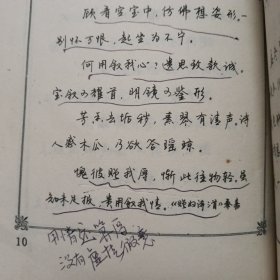 顾看空室中，仿佛想姿形。一
别怀万恨，起坐为不宁。
何用叙我心？遗思致款诚。
宝钗可耀首，明镜可鉴形。
芳香去垢秽，素琴有清声。诗
人感木瓜，乃欲答瑶琼。
愧彼赠我厚，惭此往物轻。虽
知未足报，贵用叙我情。《赠妇诗·三首》秦嘉
10
用情
没有虚